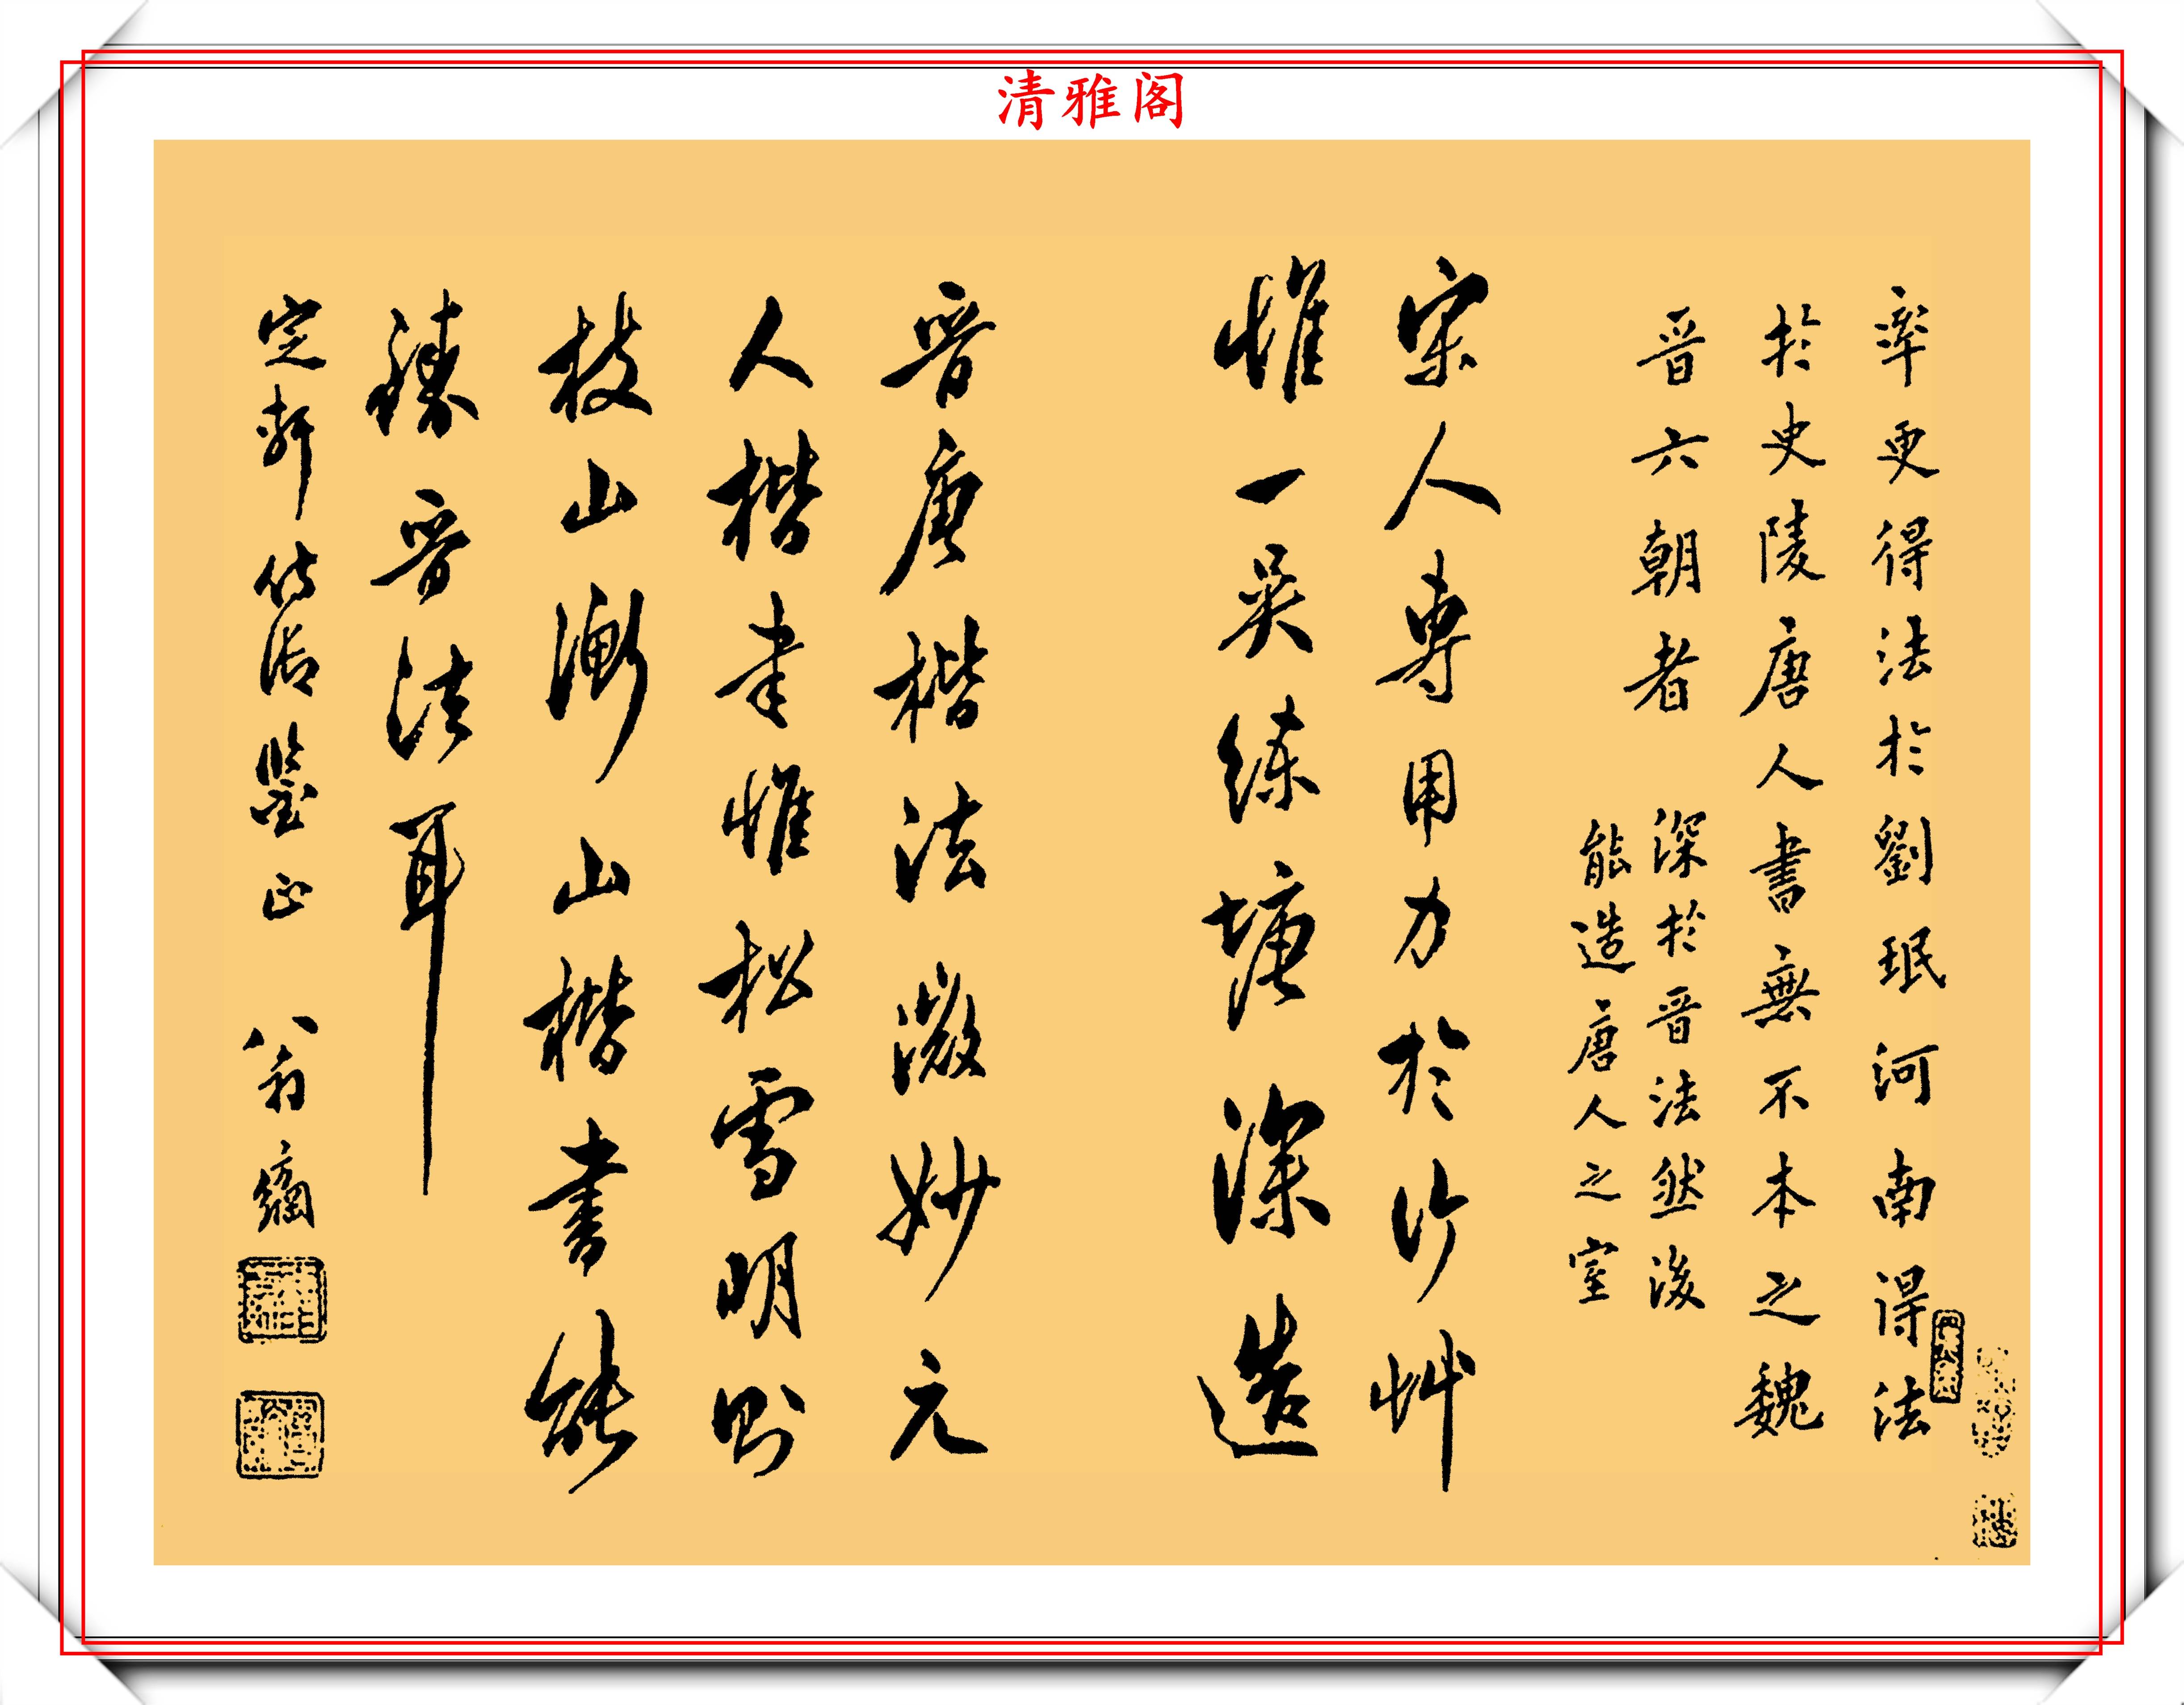 清雅阁
率更得法於劉珉河南得法
於史陵唐人書無不本之魏
晉六朝者
深於晉法然後
能造唐人之室
宋人專用力於行艸
惟一吳練塘深造
晉唐楷法微妙元
人楷書惟松雪明則
枝山衡山楷書能
臻晉法耳
定軒侍御鑒正 翁方綱